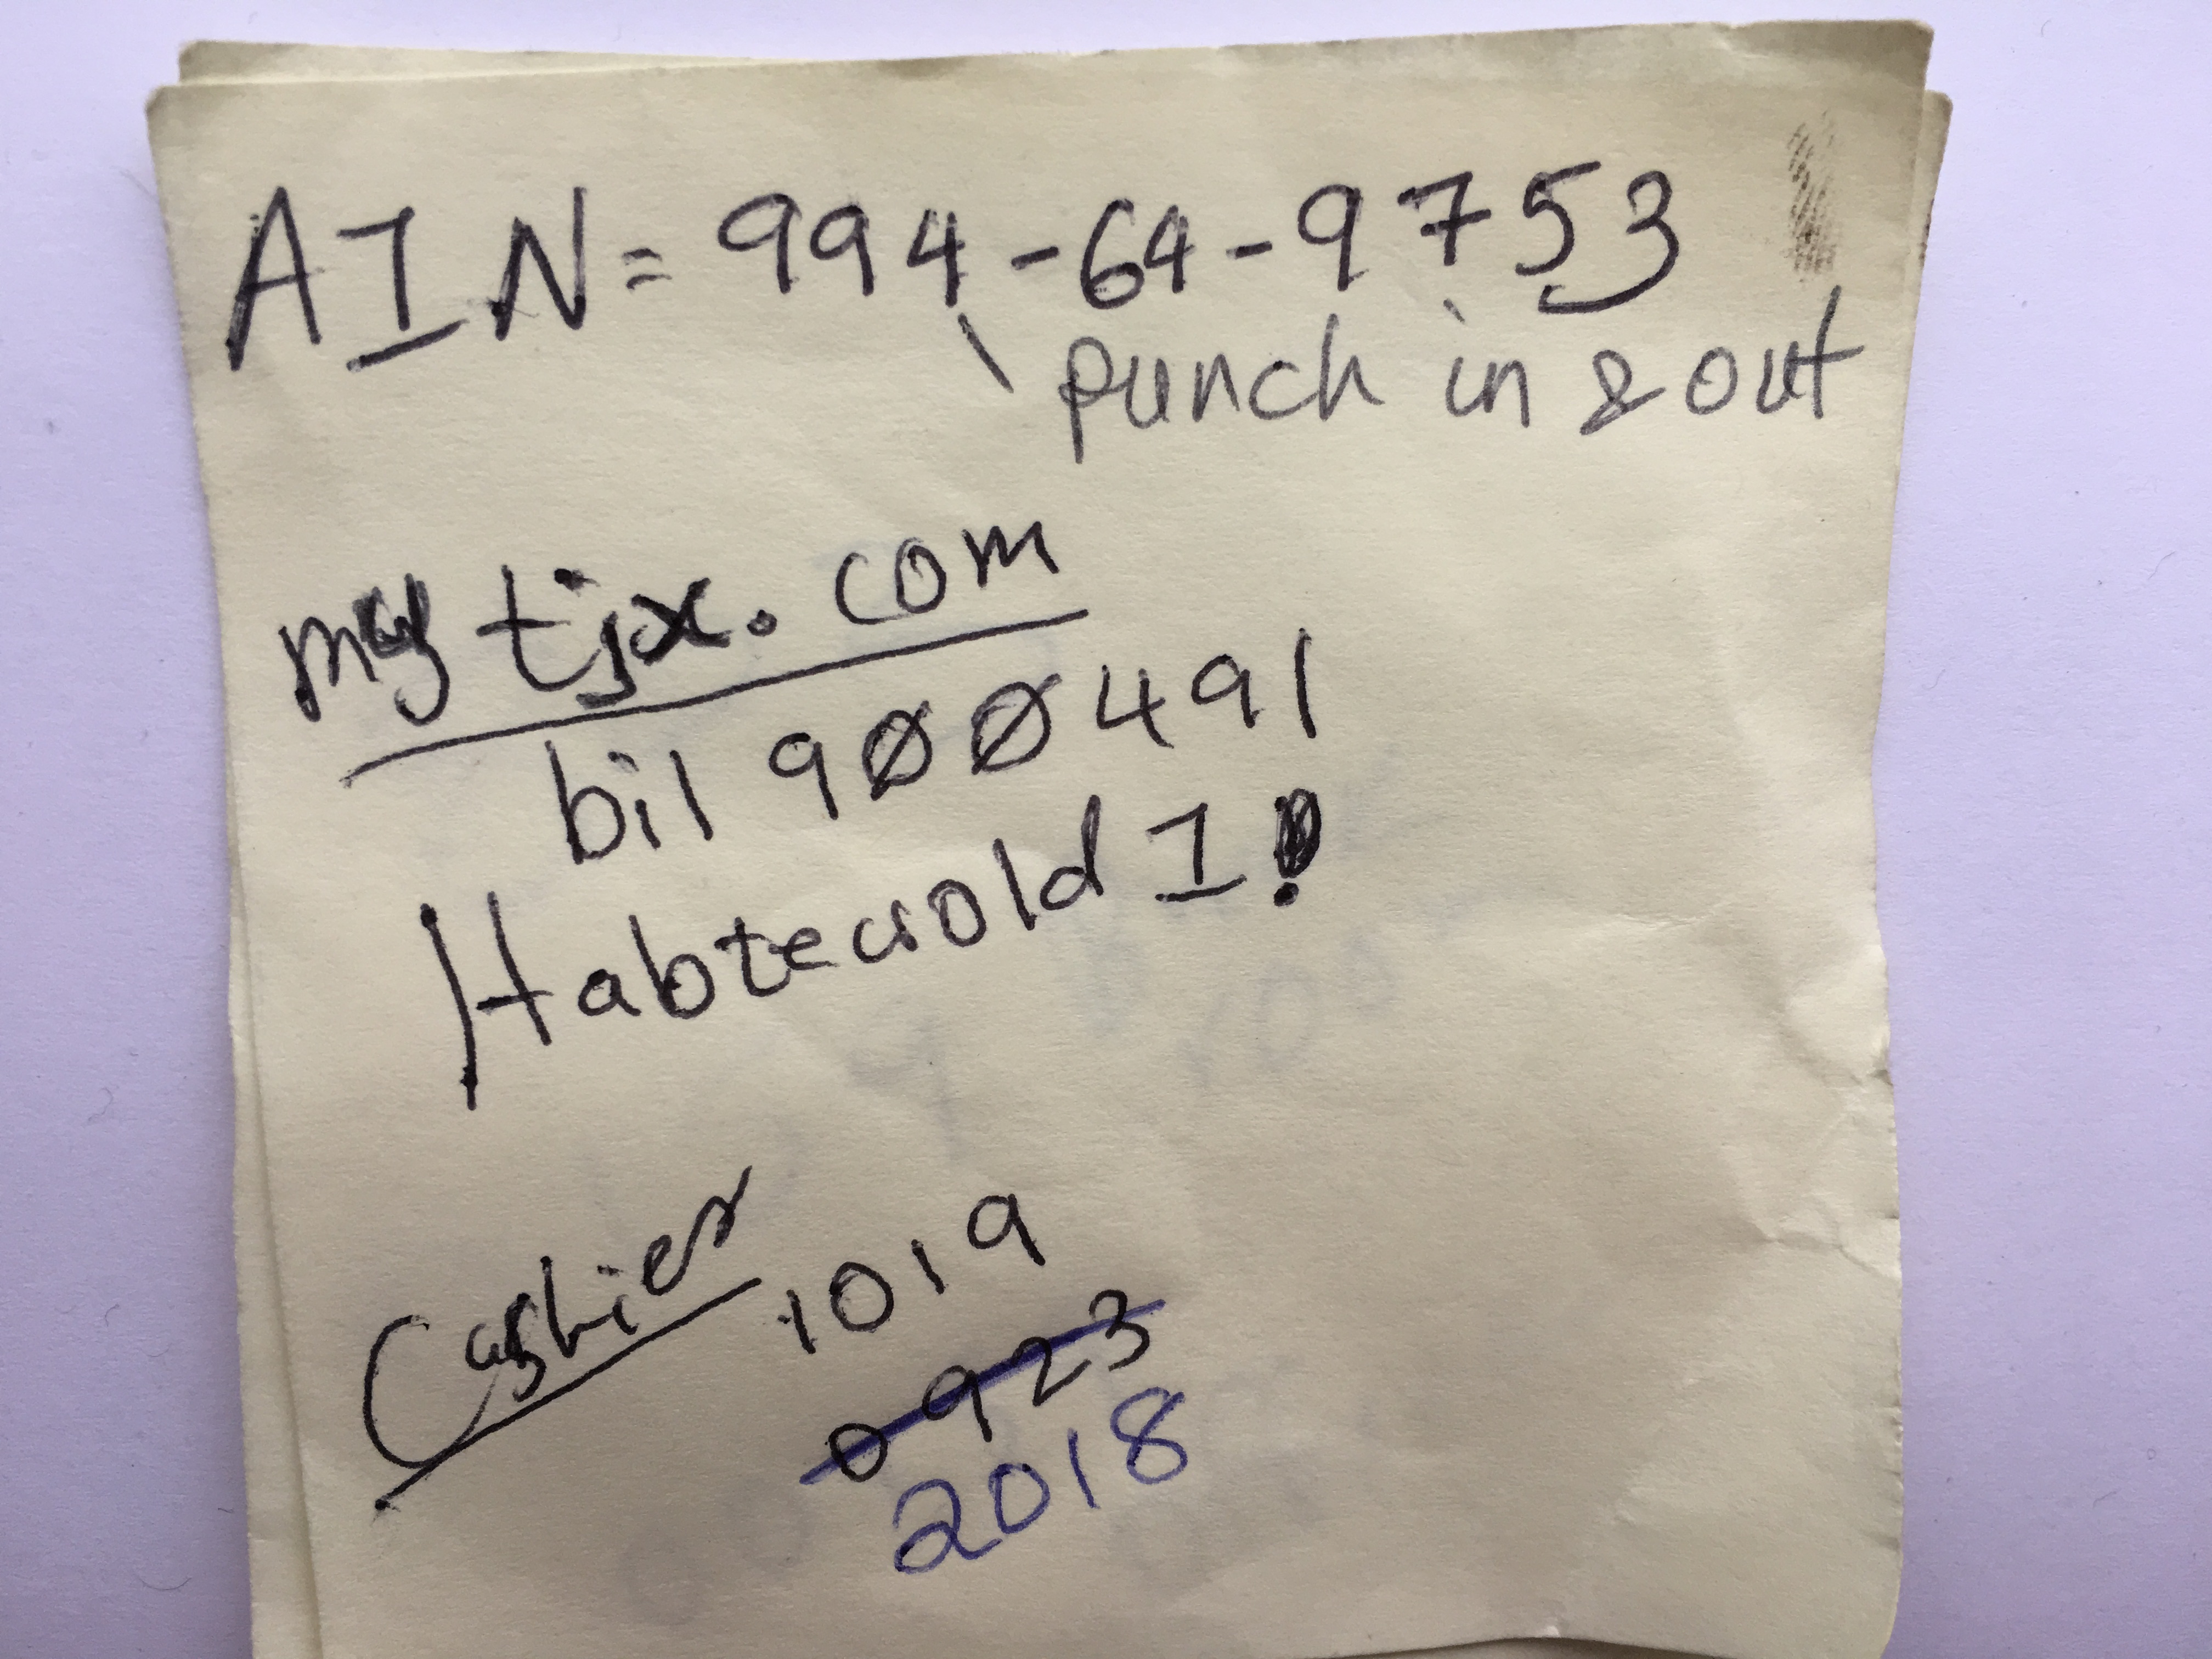 AIN = 994-64-9753
punch in & out
mytjx.com
bil 900491
Habtewold I!
Cashier 1019
0923
2018